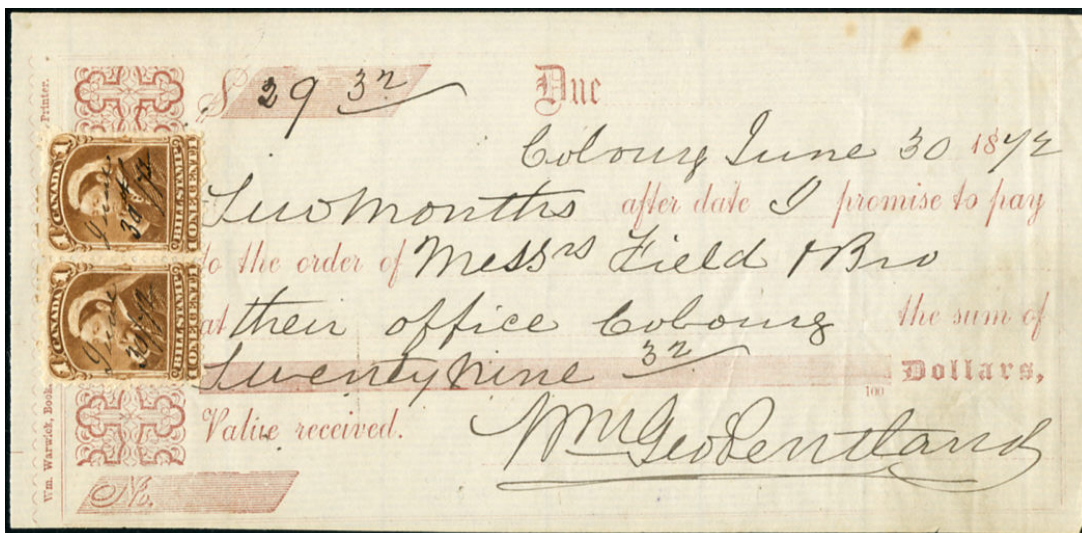 $ 29 32
Due
Cobourg June 30 1872
Two Months after date I promise to pay
to the order of Messrs Field & Bro
at their office Cobourg the sum of
Twenty Nine 32 100 Dollars,
Value received. Wm Geo Pentland
No.
Wm. Warwick, Book Printer.
1 CANADA 1
BILL STAMP
ONE CENT
June
30th/72
1 CANADA 1
BILL STAMP
ONE CENT
June
30/72